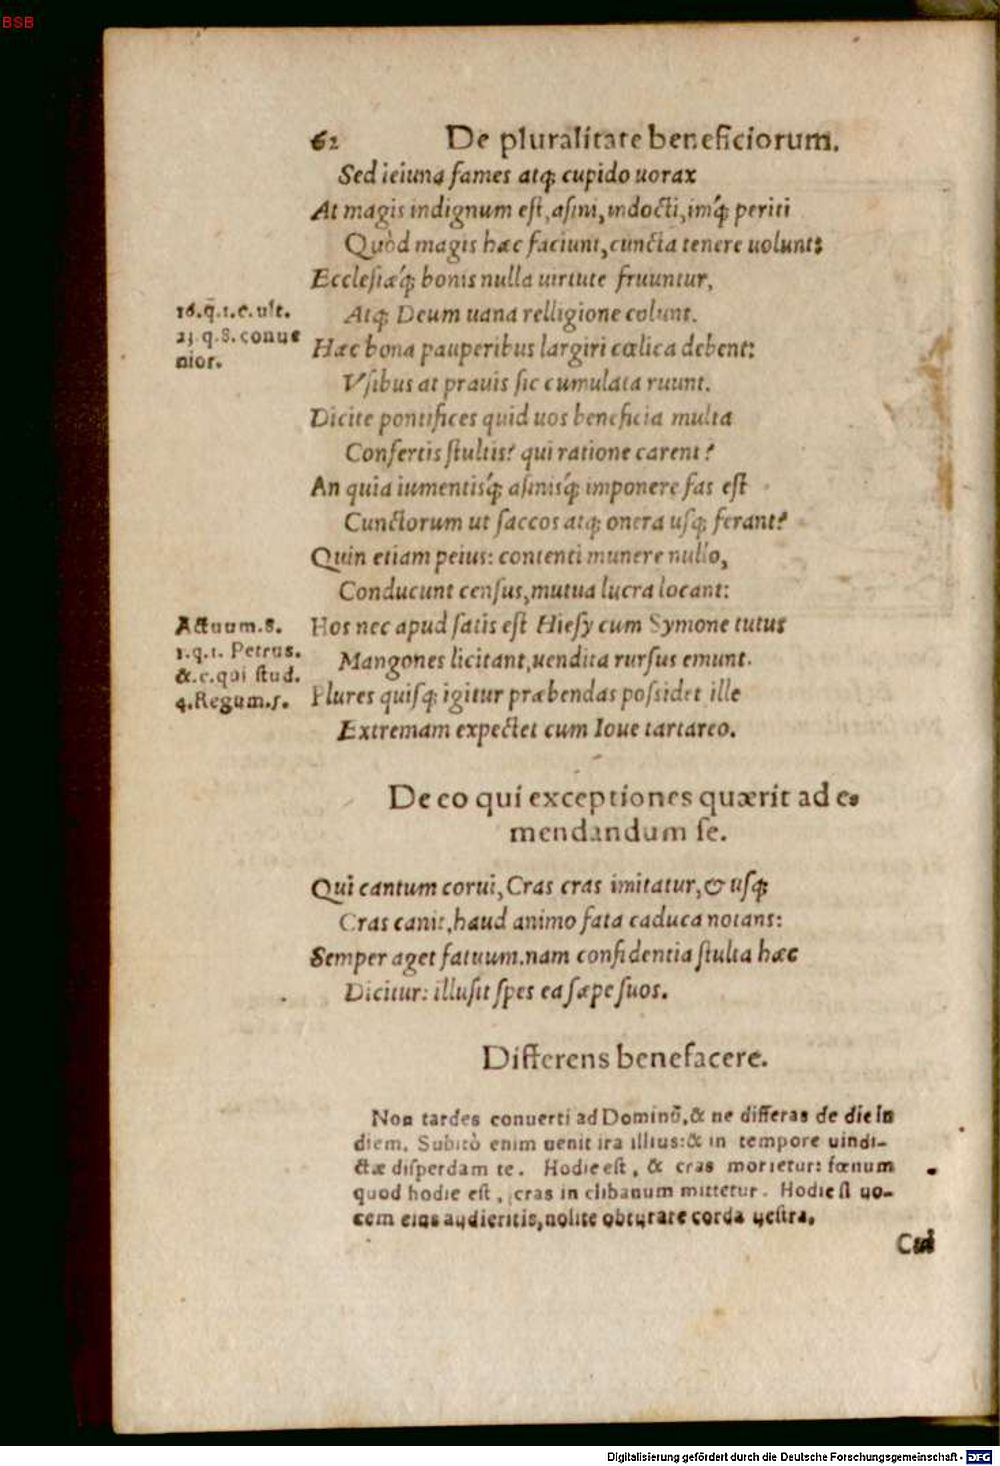 BSB
62 De pluralitate beneficiorum.
Sed ieiuna fames atq; cupido uorax
At magis indignum est, asini, indocti, imq́; periti
Quòd magis hæc faciunt, cuncta tenere uolunt:
Ecclesiæq́; bonis nulla uirtute fruuntur,
16.q̃.1.c.ult.
Atq; Deum uana relligione colunt.
23.q.8.conue
nior.
Hæc bona pauperibus largiri cœlica debent:
Vsibus at prauis sic cumulata ruunt.
Dicite pontifices quid uos beneficia multa
Confertis stultis? qui ratione carent?
An quia iumentisq́; asinisq́; imponere fas est
Cunctorum ut saccos atq; onera usq; ferant?
Quin etiam peius: contenti munere nullo,
Conducunt census, mutua lucra locant:
Actuum.8.
1.q.1. Petrus.
&.c.qui stud.
4.Regum.5.
Hos nec apud satis est Hiesy cum Symone tutus
Mangones licitant, uendita rursus emunt.
Plures quisq; igitur præbendas possidet ille
Extremam expectet cum Ioue tartareo.
De eo qui exceptiones quærit ad e-
mendandum se.
Qui cantum corui, Cras cras imitatur, & usq;
Cras canit, haud animo fata caduca notans:
Semper aget fatuum. nam confidentia stulta hæc
Dicitur: illusit spes ea sæpe suos.
Differens benefacere.
Non tardes conuerti ad Dominũ, & ne differas de die in
diem. Subitò enim uenit ira illius: & in tempore uindi-
ctæ disperdam te. Hodie est, & cras morietur: fœnum
quod hodie est, cras in clibanum mittetur. Hodie si uo-
cem eius audieritis, nolite obturare corda uestra.
Cui
Digitalisierung gefördert durch die Deutsche Forschungsgemeinschaft - DFG